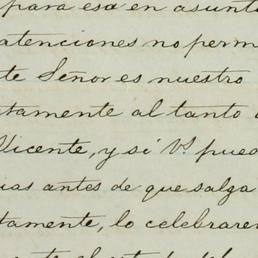 para esa en asunto
atenciones no perm
te Señor es nuestro
tamente al tanto
Vicente, y si Vs. pued
ias antes de que salga
tamente, lo celebrare